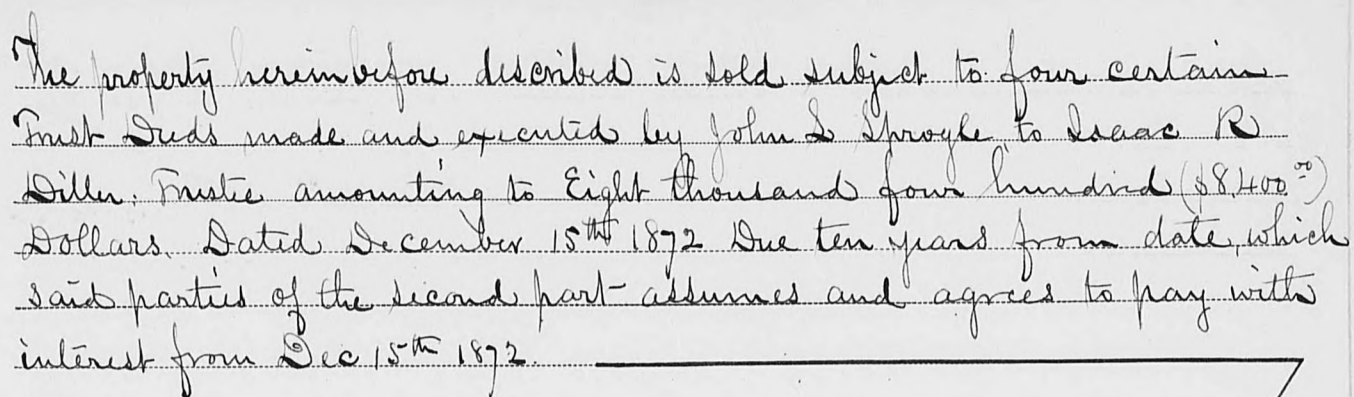 The property hereinbefore described is sold subject to four certain
Trust Deeds made and executed by John L Sprogle to Isaac R
Diller, Trustee amounting to Eight thousand four hundred ($8,400.00)
Dollars. Dated December 15th 1872 Due ten years from date, which
said parties of the second part assumes and agrees to pay with
interest from Dec 15th 1872.